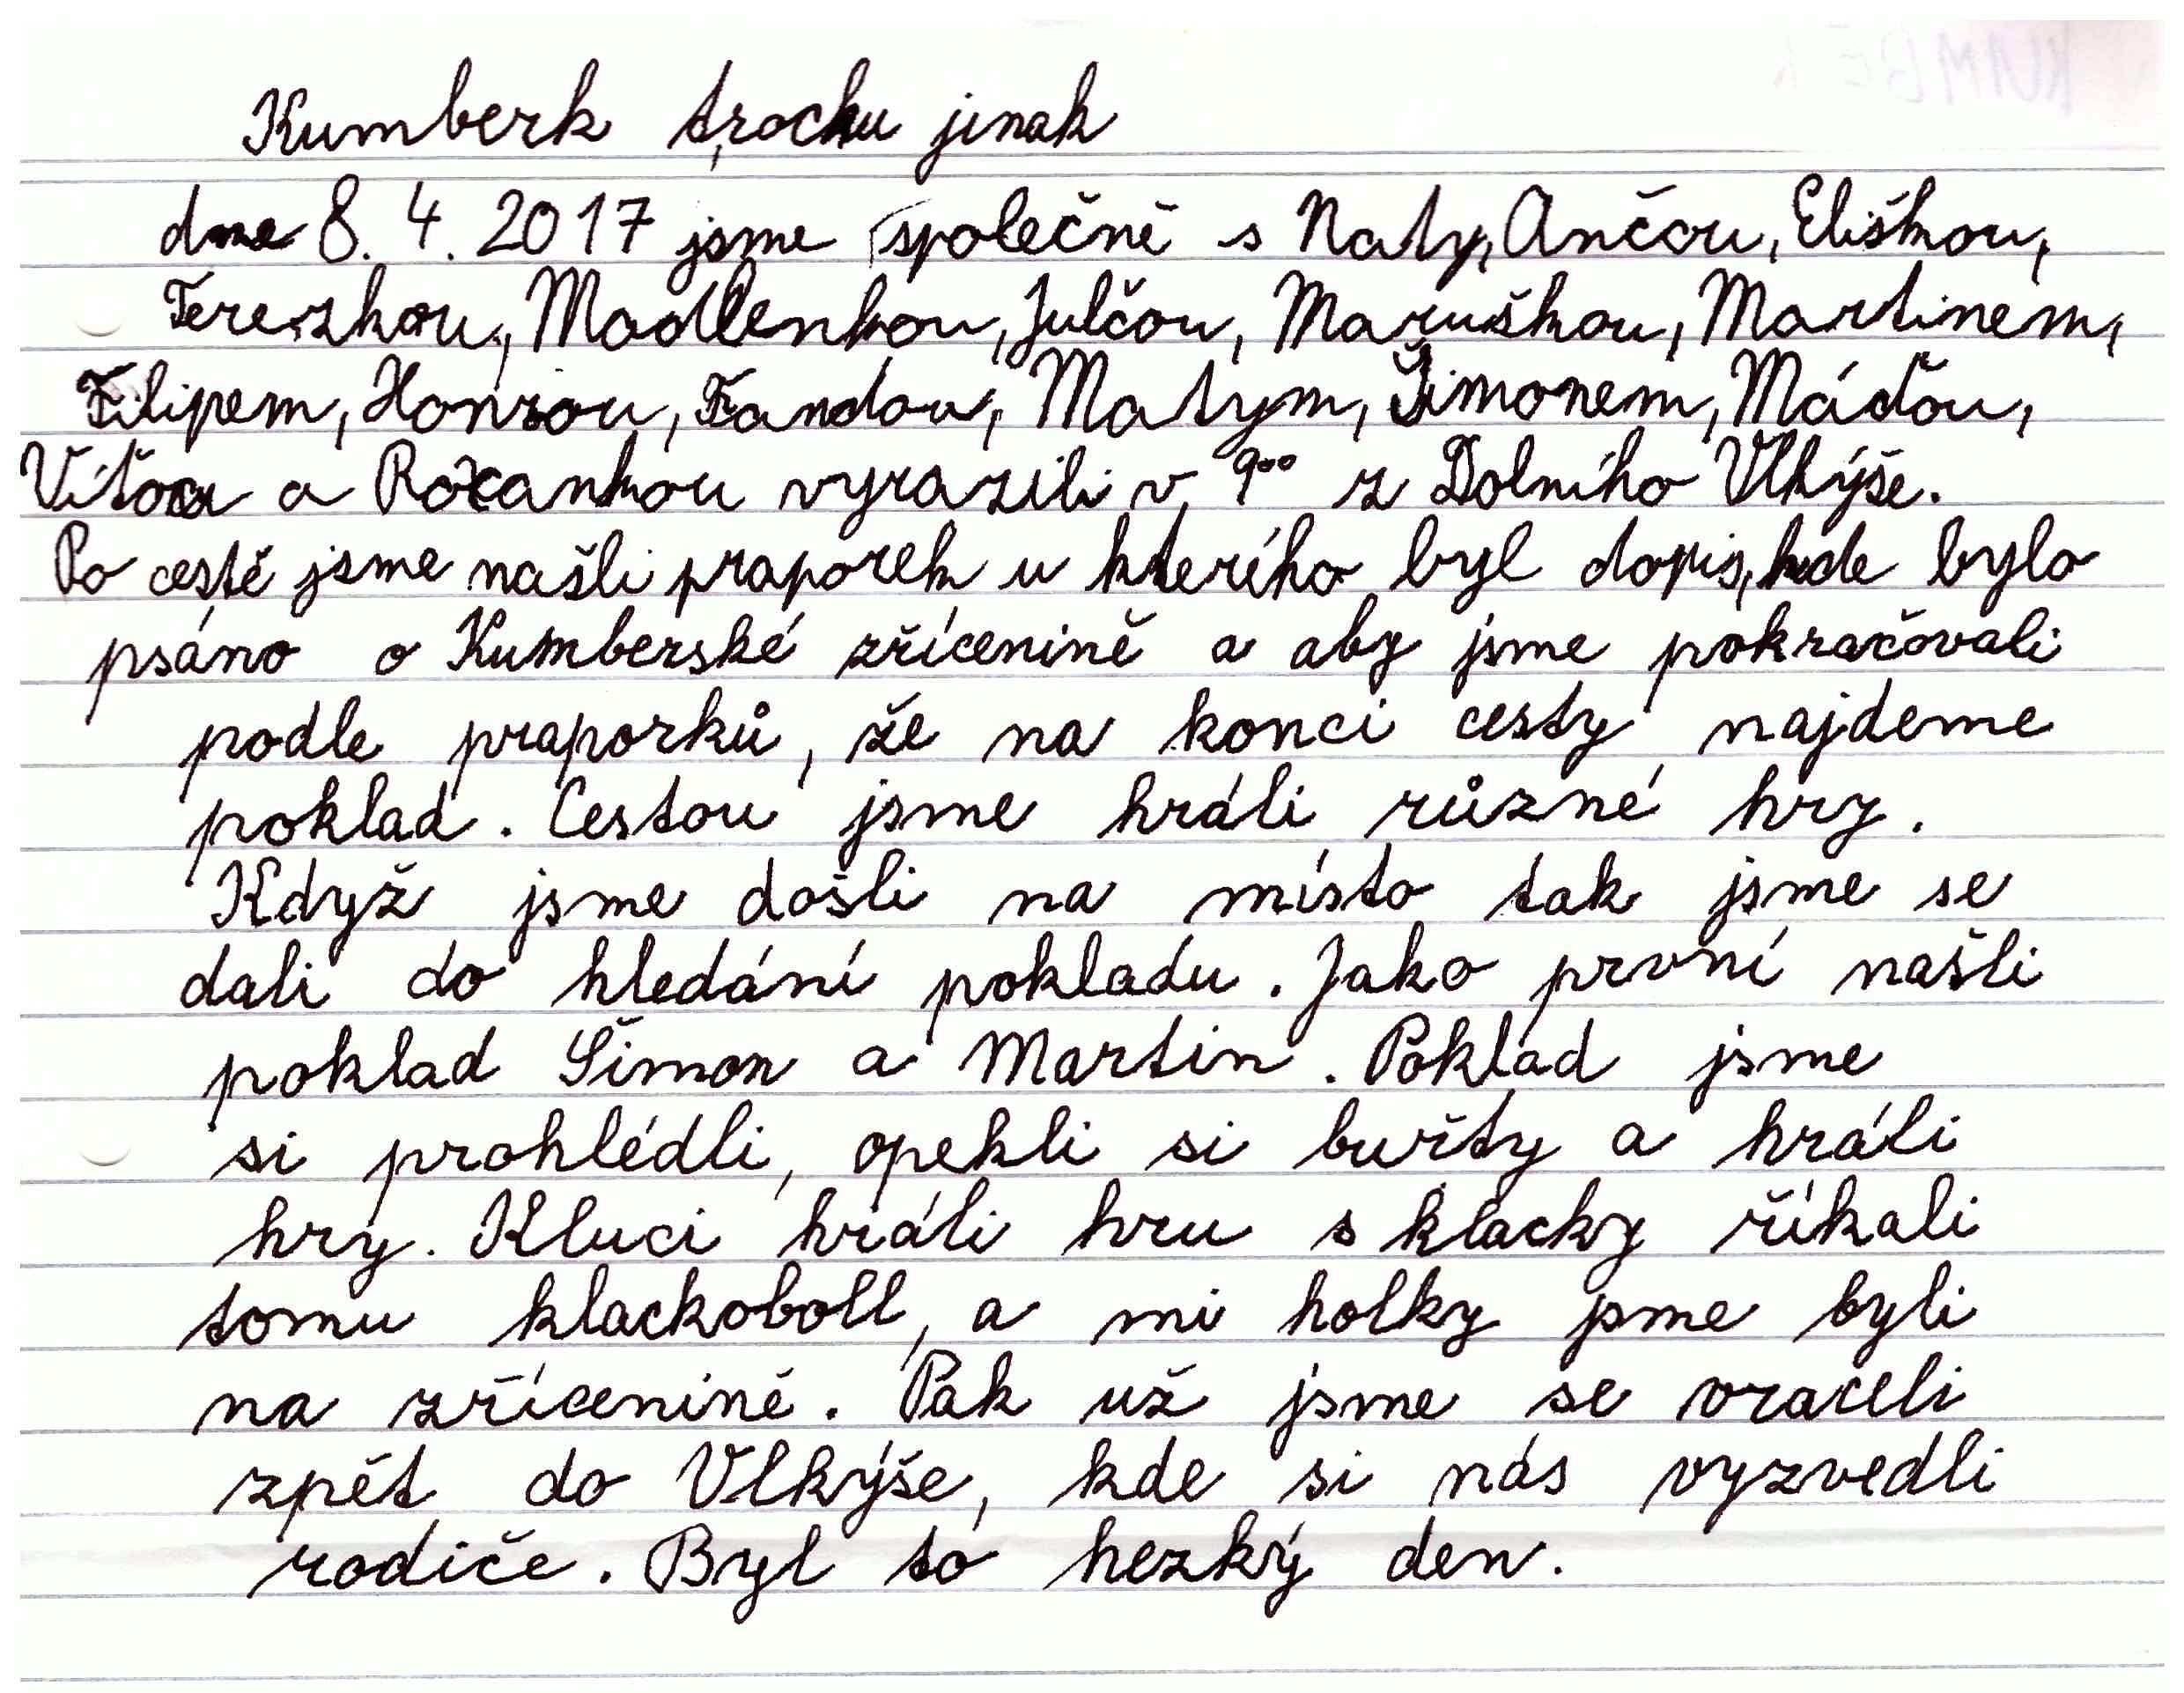 Kumberk trochu jinak
dne 8. 4. 2017 jsme společně s Naty, Ančou, Eliškou,
Terezkou, Madlenkou, Julčou, Maruškou, Martinem,
Filipem, Honzou, Fandou, Matym, Šimonem, Máďou,
Víťou a Rozankou vyrazili v 9⁰⁰ z Dolního Vlkýše.
Po cestě jsme našli praporek u kterého byl dopis, kde bylo
psáno o Kumberské zřícenině a aby jsme pokračovali
podle praporků, že na konci cesty najdeme
poklad. Cestou jsme hráli různé hry.
Když jsme došli na místo tak jsme se
dali do hledání pokladu. Jako první našli
poklad Šimon a Martin. Poklad jsme
si prohlédli, opekli si buřty a hráli
hry. Kluci hráli hru s klacky říkali
tomu klackoboll, a mi holky jsme byli
na zřícenině. Pak už jsme se vraceli
zpět do Vlkýše, kde si nás vyzvedli
rodiče. Byl to hezký den.